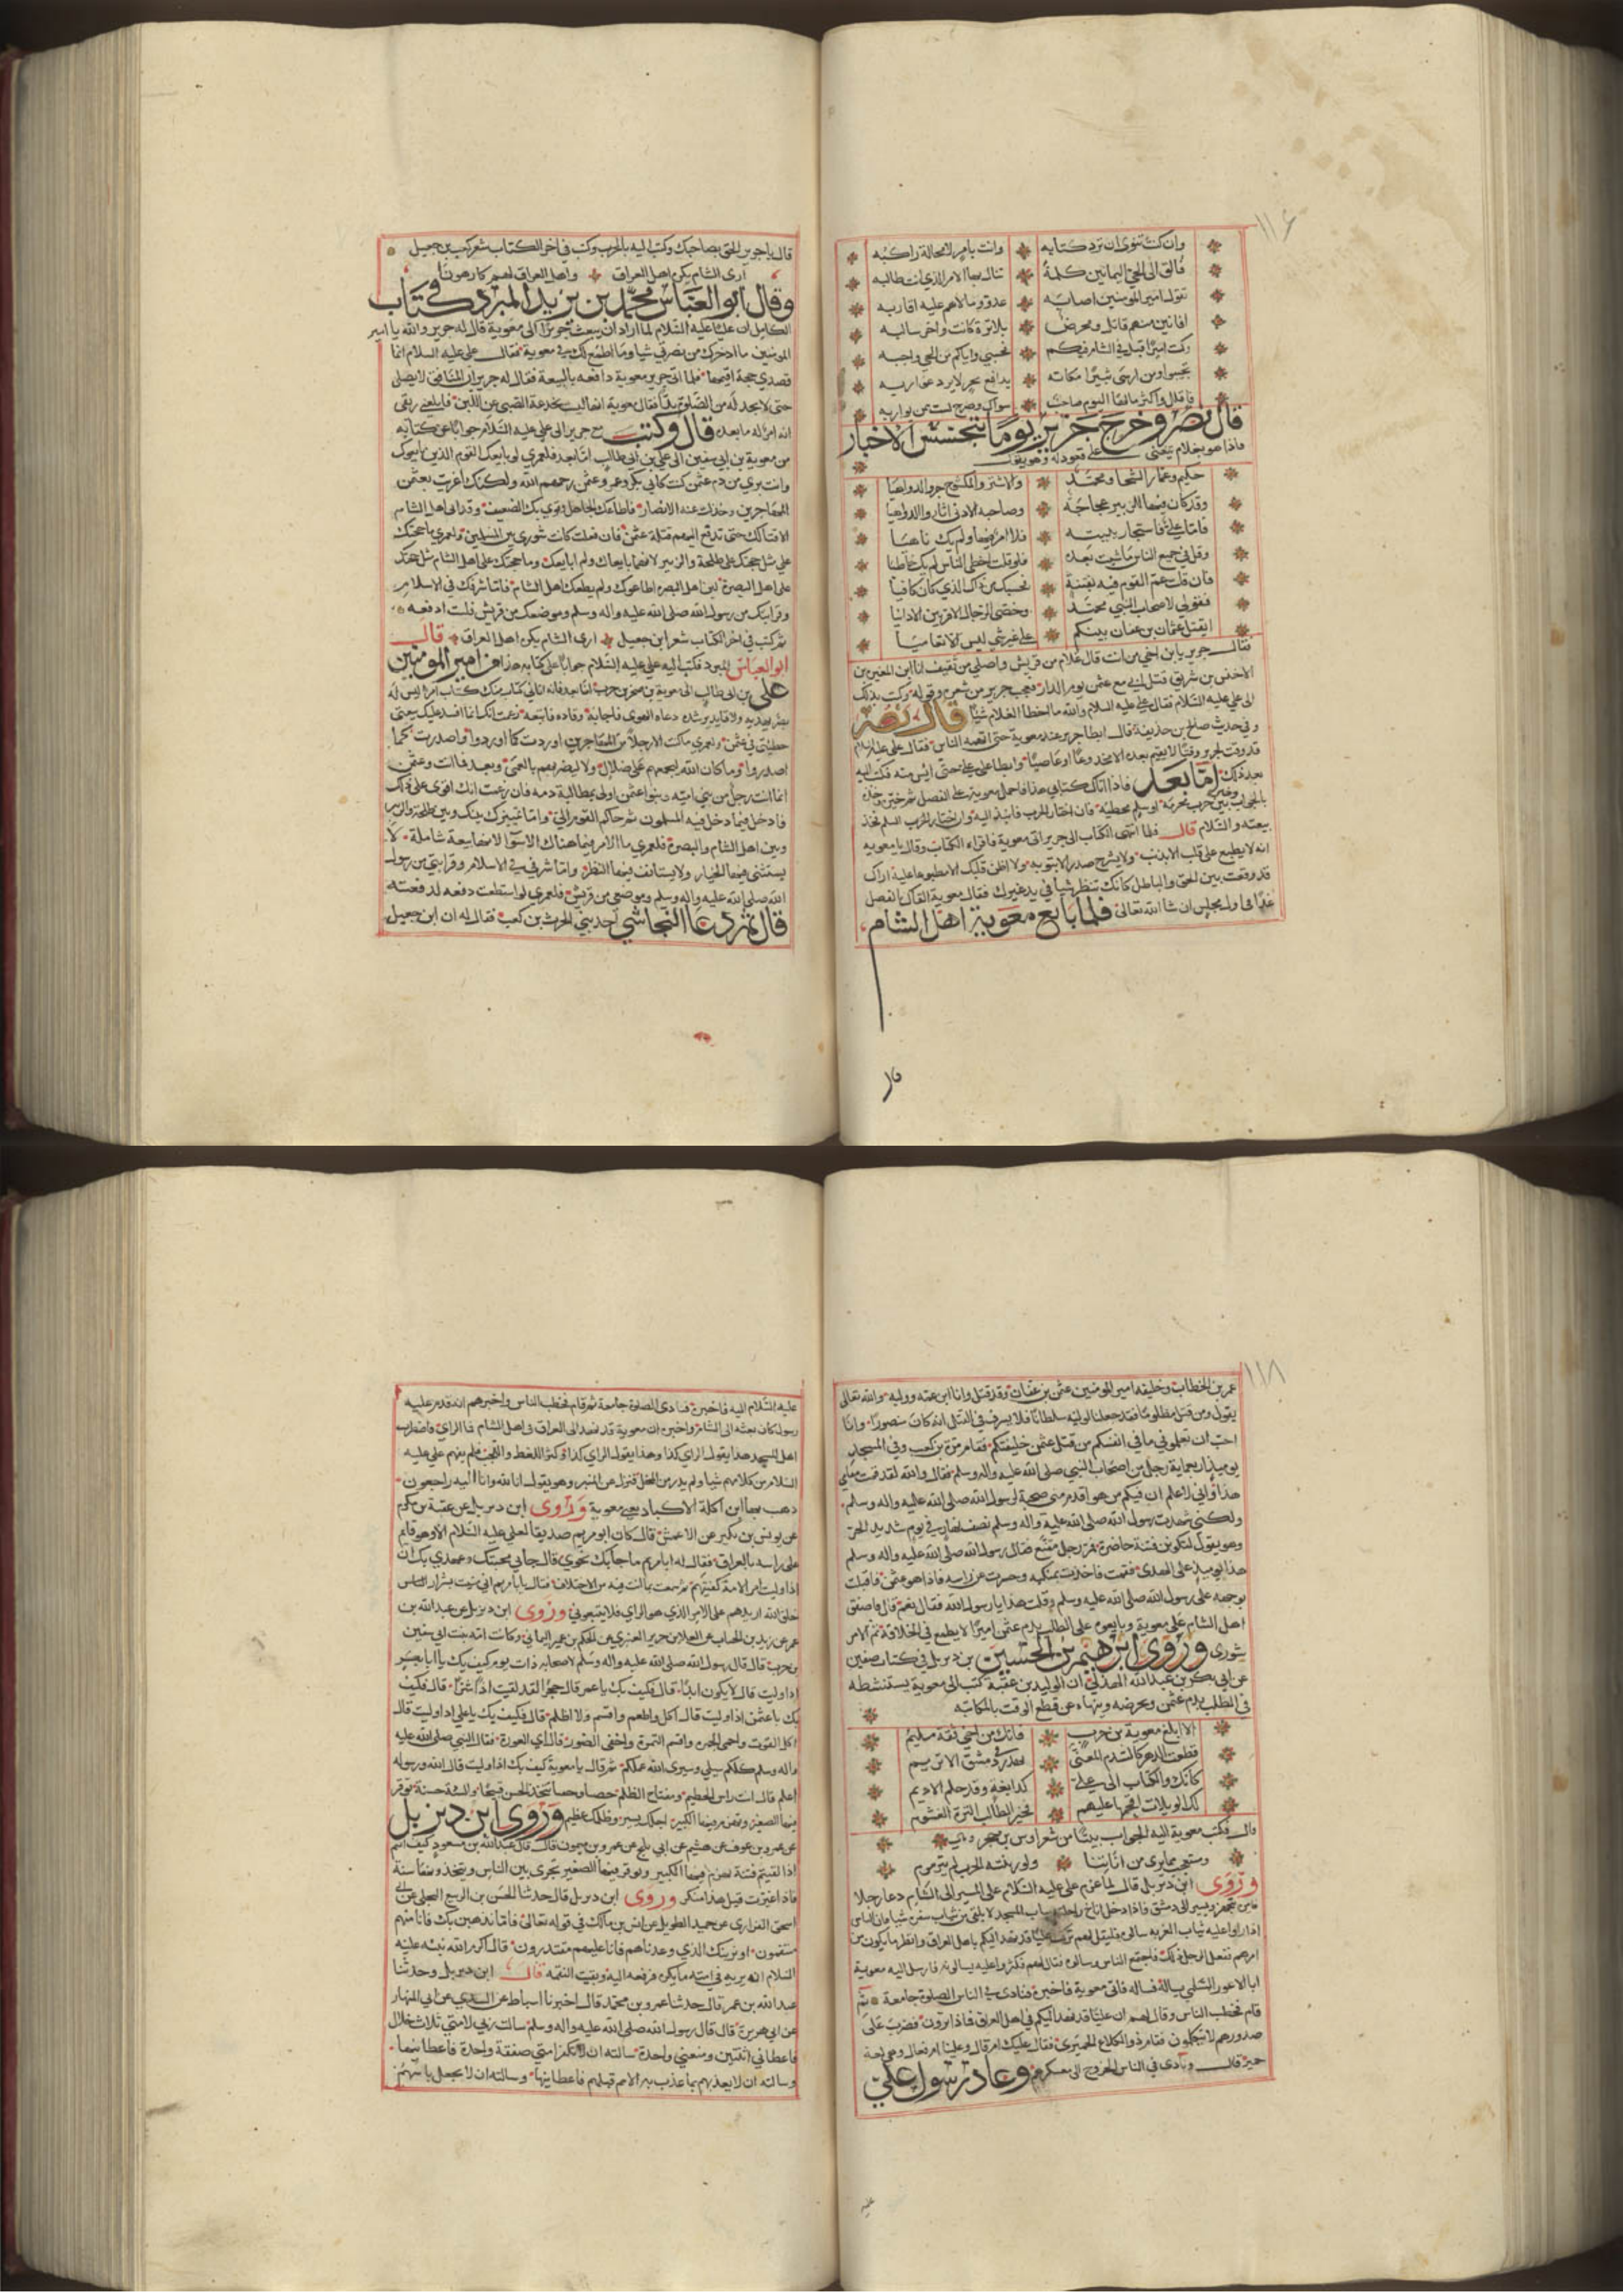 ١١٦
وان كنت تنوى ان ترد كتابه وانت بامر لا محالة راكبه
فالق الى الحي اليمانين كلمة تنال بها الامر الذي انت طالبه
تقول امير المومنين اصابه عدو ومالاهم عليه اقاربه
افانين منهم قاتل ومحرض بلا ترة كانت واخر سالبه
وكنت اميرا قبل في الشام فيكم فحسبي واياكم من الحق واجبه
تجيبوا ومن ارسى ثبيرا مكانه يدافع بحر لا يرد غواربه
فاقلل واكثر مالها اليوم صاحب سواك وصرح لست ممن يواربه
قال نصر وخرج جرير يوما يتجسس الاخبار
فاذا هو بغلام يتغنى على قعود له وهو يقول
حكيم وعمار الشجا ومحمد والاشتر والمكشوح جروا الدواهيا
وقد كان فيها الزبير عجاجة وصاحبه الادنى اثار والدواهيا
فاما علي فاستجار ببيته فلا امر فيها ولم يك ناهيا
وقل في جميع الناس ما شيت بعده فلو قلت اخطى الناس لم يك خاطيا
فان قلت عم القوم فيه بفتنة فحسبك من ذاك الذي كان كافيا
فقولي لاصحاب النبي محمد وخصى الرجال الاقربين الادانيا
ايقتل عثمان بن عفان بينكم على غير شي ليس الا تعاميا
فقال جرير يا بن اخي من انت قال غلام من قريش واصلي من ثقيف انا ابن المغيرة بن
الاخنس بن شريق قتل ابي مع عثمن يوم الدار فعجب جرير من شعره وقوله وكتب بذلك
الى علي عليه السلام فقال علي عليه السلام والله ما اخطا الغلام شيا قال نصر
وفي حديث صالح بن صدقة قال ابطا جرير عند معوية حتى اتهمه الناس فقال علي عليه السلم
قد وقت لجرير وقتا لا يقيم بعده الا مخدوعا او عاصيا وابطا على علي حتى ايس منه فكتب اليه
بعد ذلك اما بعد فاذا اتاك كتابي هذا فاحمل معوية على الفصل ثم خيره وخذه
بالجواب بين حرب مخزية او سلم محظية فان اختار الحرب فانبذ اليه وان اختار السلم فخذ
بيعته والسلام قال فلما انتهى الكتاب الى جرير اتى معوية فاقراه الكتاب وقال يا معويه
انه لا يطبع على قلب الا بذنب ولا يشرح صدر الا بتوبه ولا اظن قلبك الا مطبوعا عليه اراك
قد وقفت بين الحق والباطل كانك تنتظر شيا في يد غيرك فقال معوية القاك بالفصل
غدا في اول مجلس ان شا الله تعالى فلما بايع معوية اهل الشام
قال يا جرير الحق بصاحبك وكتب اليه بالحرب وكتب في اخر الكتاب شعر كعب بن جعيل
ارى الشام يكره اهل العراق واهل العراق لهم كارهونا
وقال ابو العباس محمد بن يزيد المبرد في كتاب
الكامل ان عليا عليه السلام لما اراد ان يبعث جريرا الى معوية قال له جرير والله يا امير
المومنين ما ادخرك من نصرتي شيا وما اطمع لك في معوية فقال علي عليه السلام انما
قصدي حجة اقيمها فلما اتى جرير معوية دافعه بالبيعة فقال له جرير ان المنافق لا يصلي
حتى لا يجد له من الصلوة بدا فقال معوية انها ليست بخدعة الصبي عن اللبن فابلعني ريقى
انه امر له ما بعده قال وكتب مع جرير الى علي عليه السلام جوابا عن كتابه
من معوية بن ابي سفين الى علي بن ابي طالب اما بعد فلعمري لو بايعك القوم الذين بايعوك
وانت بري من دم عثمن كنت كابي بكر وعمر وعثمن رحمهم الله ولكنك اغريت بعثمن
المهاجرين وخذلت عنه الانصار فاطاعك الجاهل وقوي بك الضعيف وقد ابى اهل الشام
الا قتالك حتى تدفع اليهم قتلة عثمن فان فعلت كانت شورى بين المسلمين ولعمري ما حجتك
علي مثل حجتك على طلحة والزبير لانهما بايعاك ولم ابايعك وما حجتك على اهل الشام مثل حجتك
على اهل البصرة لان اهل البصرة اطاعوك ولم يطعك اهل الشام فاما شرفك في الاسلام
وقرابتك من رسول الله صلى الله عليه واله وسلم وموضعك من قريش فلست ادفعه
ثم كتب في اخر الكتاب شعر ابن جعيل ارى الشام يكره اهل العراق قال
ابو العباس المبرد فكتب اليه علي عليه السلام جوابا على كتابه هذا من امير المومنين
علي بن ابي طالب الى معوية بن صخر بن حرب اما بعد فانه اتاني كتاب منك كتاب امرئ ليس له
بصر يهديه ولا قايد يرشده دعاه الهوى فاجابه وقاده فاتبعه زعمت انك انما افسد عليك بيعتى
خطيئتي في عثمن ولعمري ما كنت الا رجلا من المهاجرين اوردت كما اوردوا واصدرت كما
اصدروا وما كان الله ليجمعهم على ضلال ولا ليضربهم بالعمى وبعد فما انت وعثمن
انما انت رجل من بني اميه وبنوا عثمن اولى بمطالبة دمه فان زعمت انك اقوى على ذلك
فادخل فيما دخل فيه المسلمون ثم حاكم القوم الي واما تمييزك بينك وبين طلحة والزبير
وبين اهل الشام والبصرة فلعمري ما الامر فيما هناك الا سوا لانها بيعة شاملة لا
يستثنى فيها الخيار ولا يستانف فيها النظر واما شرفي في الاسلام وقرابتي من رسول
الله صلى الله عليه واله وسلم وموضعي من قريش فلعمري لو استطعت دفعه لدفعته
قال ثم دعا النجاشي احد بني الحرث بن كعب فقال له ان ابن جعيل
١١٨
عمر بن الخطاب وخليفة امير المومنين عثمن بن عفان وقد قتل وانا ابن عمه ووليه والله تعالى
يقول ومن قتل مظلوما فقد جعلنا لوليه سلطانا فلا يسرف في القتل انه كان منصورا وانا
احب ان تعلموني ما في انفسكم من قتل عثمن خليفتكم فقام مرة بن كعب وفي المسجد
يوميذ اربعماية رجل من اصحاب النبي صلى الله عليه واله وسلم فقال والله لقد قمت مقامي
هذا واني لاعلم ان فيكم من هو اقدم مني صحبة لرسول الله صلى الله عليه واله وسلم
ولكني شهدت رسول الله صلى الله عليه واله وسلم نصف نهار في يوم شديد الحر
وهو يقول لتكونن فتنة حاضرة فمر رجل مقنع فقال رسول الله صلى الله عليه واله وسلم
هذا يوميذ على الهدى فقمت فاخذت بمنكبه وحسرت عن راسه فاذا هو عثمن فاقبلت
بوجهه على رسول الله صلى الله عليه وسلم وقلت هذا يا رسول الله فقال نعم قال واصفق
اهل الشام على معوية وبايعوه على الطلب بدم عثمن اميرا لا يطمع في الخلافة ثم الامر
شورى وروى ابرهيم بن الحسين بن ديزيل في كتاب صفين
عن ابي بكر بن عبد الله الهذلي ان الوليد بن عقبة كتب الى معوية يستنشطه
في الطلب بدم عثمن ويحرضه وينهاه عن قطع الوقت بالمكاتبه
الا ابلغ معوية بن حرب فانك من اخي ثقة مليم
قطعت الدهر كالسدم المعنى تهدر في دمشق ولا تريم
كانك والكتاب الى علي كدابغة وقد حلم الاديم
لك الويلات اقحمها عليهم فخير الطالب الترة الغشوم
قال فكتب معوية اليه الجواب بيتا من شعر اوس بن حجر
ومستعجب مما يرى من اناتنا ولو زبنته الحرب لم يترمرم
وروى ابن ديزيل قال لما عزم علي عليه السلام على المسير الى الشام دعا رجلا
فامره ان يتجهز ويسير الى دمشق فاذا دخل اناخ راحلته بباب المسجد لا يلقي من ثياب سفره شيا فان الناس
اذا راوا عليه ثياب الغربه سالوه فليقل لهم تركت عليا قد نهد اليكم باهل العراق وانظر ما يكون من
امرهم ففعل الرجل ذلك فاجتمع الناس وسالوه فقال لهم فكثروا عليه يسالونه فارسل اليه معوية
ابا الاعور السلمي يساله فساله فاتى معوية فاخبره فنادى في الناس الصلوة جامعة ثم
قام فخطب الناس وقال لهم ان عليا قد نهد اليكم في اهل العراق فماذا ترون فضرب على
صدورهم لا يتكلمون فقام ذو الكلاع الحميرى فقال عليك امر قال وعلينا امفعال وهي لغة
حمير قال ونادى في الناس بالخروج الى معسكرهم وعاد رسول علي
عليه السلام اليه فاخبره فنادى الصلوة جامعة ثم قام فخطب الناس واخبرهم انه قدم عليه
رسول كان بعثه الى الشام واخبره ان معوية قد نهد الى العراق في اهل الشام فما الراي فاضطرب
اهل المسجد هذا يقول الراي كذا وهذا يقول الراي كذا وكثر اللغط واللجب فلم يفهم علي عليه
السلام من كلامهم شيا ولم يدر من المخطي فنزل عن المنبر وهو يقول انا لله وانا اليه راجعون
ذهب بها ابن اكلة الاكباد يعني معوية وروى ابن ديزيل عن عقبة بن مكرم
عن يونس بن بكير عن الاعمش قال كان ابو مريم صديقا لعلي عليه السلام الا وهو قايم
على راسه بالعراق فقال له ابا مريم ما جا بك نحوي قال جا بي محبتك وعهدي بك ان
اذا وليت امر الامة كفيتهم ثم سمعت بما انت فيه من الاختلاف فقال يا با مريم اني منيت بشرار الناس
خلق الله اريدهم على الامر الذي هو الراي فلا يتبعوني وروى ابن ديزيل عن عبد الله بن
عمر عن زيد بن الحباب عن العلا بن جرير العنبري عن الحكم بن عمير اليماني وكانت امه بنت ابي سفين
بن حرب قال قال رسول الله صلى الله عليه واله وسلم لاصحابه ذات يوم كيف بك يا ابا بكر
اذا وليت قال لا يكون ابدا قال فكيف بك يا عمر قال حجرا لقد لقيت اذا شرا قال فكيف
بك يا عثمن اذا وليت قال اكل واطعم واقسم ولا اظلم قال فكيف بك يا علي اذا وليت قال
اكل القوت واحمي الجمره واقسم التمرة واخفي الصور قال اي العورة فقال النبي صلى الله عليه
واله وسلم كلكم سيلي وسيرى الله عملكم ثم قال يا معوية كيف بك اذا وليت قال الله ورسوله
اعلم قال انت راس الحطيم ومفتاح الظلم حصبا وحقبا تتخذ الحسن قبيحا والسيئة حسنة
فيها الصغير ويهرم فيها الكبير اجلك يسير وظلمك عظيم وروى ابن ديزيل
عن عمر بن عوف عن هشيم عن ابي بلج عن عمرو بن ميمون قال قال عبد الله بن مسعود كيف انتم
اذا لقيتم فتنة يهرم فيها الكبير ويربو فيها الصغير تجرى بين الناس ويتخذونها سنة
فاذا غيرت قيل هذا منكر وروى ابن ديزيل قال حدثنا الحسن بن الربيع البجلى عن ابي
اسحق الفزارى عن حميد الطويل عن انس بن مالك في قوله تعالى فاما نذهبن بك فانا منهم
منتقمون او نرينك الذي وعدناهم فانا عليهم مقتدرون قال اكرم الله نبيه عليه
السلام ان يريه في امته ما يكره فرفعه اليه وبقيت النقمه قال ابن ديزيل وحدثنا
عبد الله بن عمر قال حدثنا عمرو بن محمد قال اخبرنا اسباط عن السدي عن ابي المنهال
عن ابي هريرة قال قال رسول الله صلى الله عليه واله وسلم سالت ربي لامتي ثلاث خلال
فاعطاني اثنتين ومنعني واحدة سالته ان لا تكفر امتي صفقة واحدة فاعطانيها
وسالته ان لا يعذبهم بما عذب به الامم قبلهم فاعطانيها وسالته ان لا يجعل باسهم